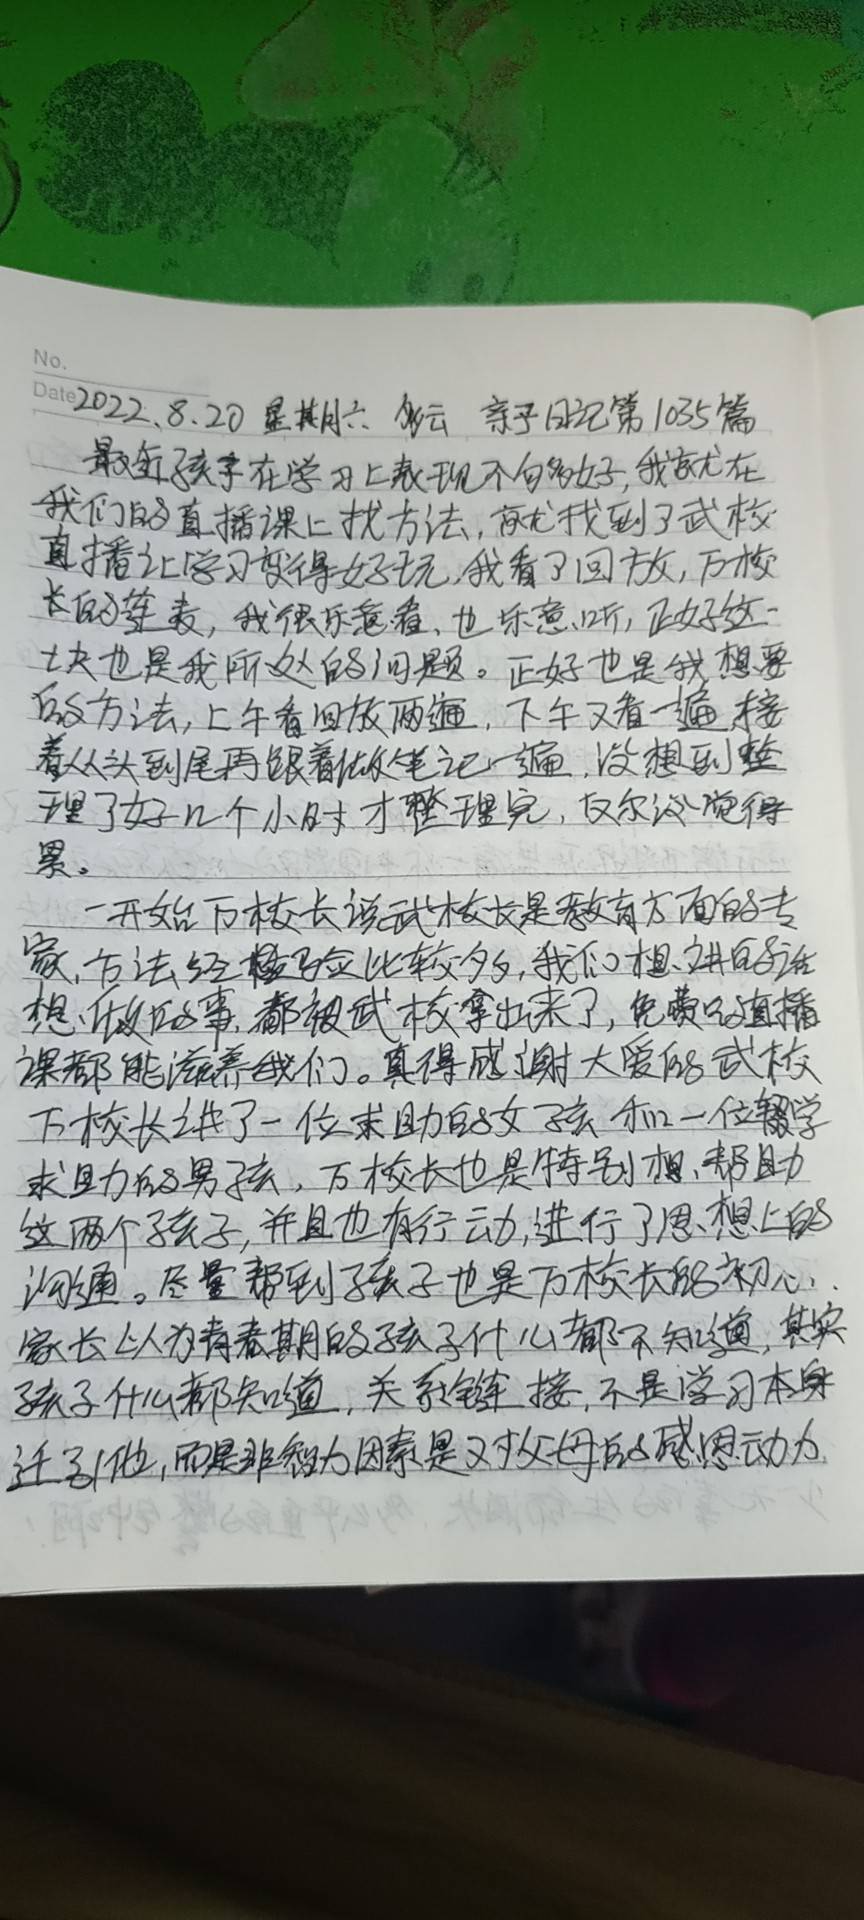 No.
Date 2022.8.20 星期六 多云 亲子日记第1035篇
最近孩子在学习上表现不自多好,我就在
我们的直播课上找方法,就找到了武校
直播让学习变得好玩,我看了回放,万校
长的笔表,我很乐意看、也乐意听,正好这一
块也是我所处的问题。正好也是我想要
的方法,上午看回放两遍,下午又看一遍接
着从头到尾再跟着做笔记一遍,没想到整
理了好几个小时才整理完,反尔没觉得
累。
一开始万校长说武校长是教育方面的专
家,方法经验比较多,我们想讲的话
想做的事,都被武校拿出来了,免费的直播
课都能滋养我们。真得感谢大爱的武校
万校长讲了一位求助的女孩和一位辍学
求助的男孩,万校长也是特别想帮助
这两个孩子,并且也有行动,进行了思想上的
沟通。尽量帮到孩子也是万校长的初心..
家长认为青春期的孩子什么都不知道,其实
孩子什么都知道,关系链接,不是学习本身
迁引他,而是非智力因素是对父母的感恩动力